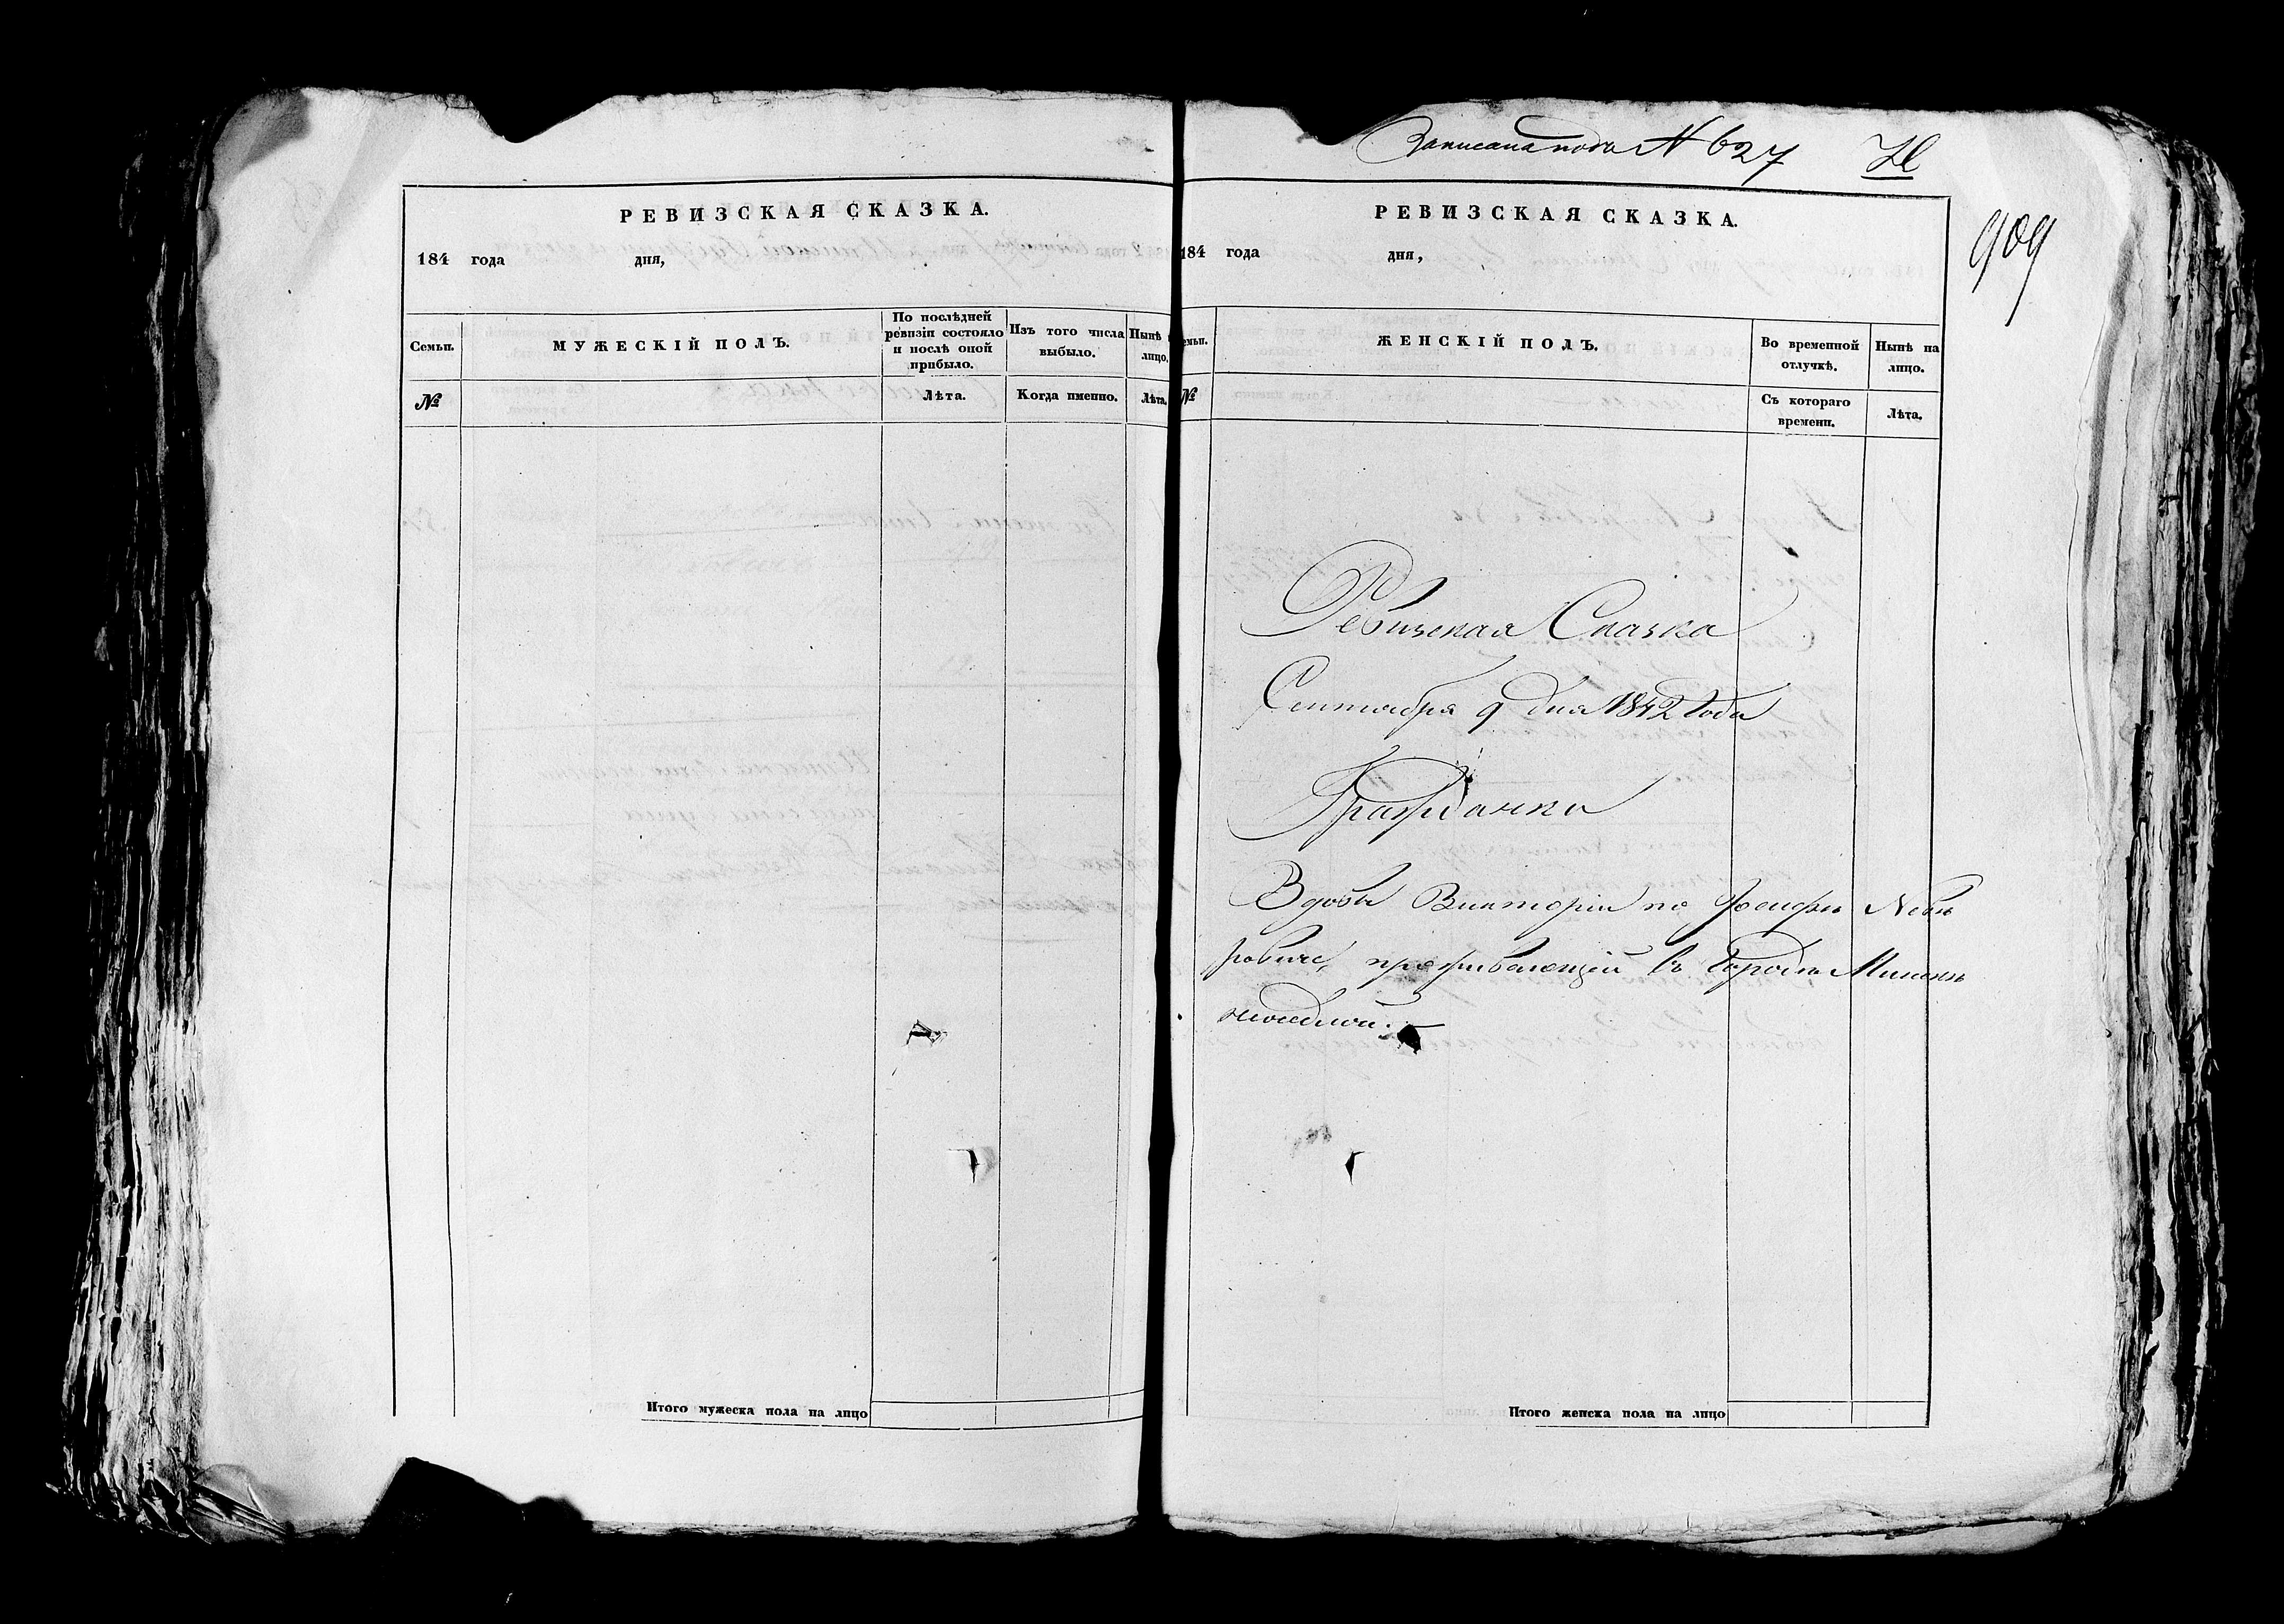 РЕВИЗСКАЯ СКАЗКА.
184 года дня,
Семьи. МУЖЕСКІЙ ПОЛЪ. По послѣдней ревизіи состояло и послѣ оной прибыло. Изъ того числа выбыло. Нынѣ на лицо.
№ Лѣта. Когда именно. Лѣта.
Итого мужеска пола на лицо
Записана подъ № 627
909
РЕВИЗСКАЯ СКАЗКА.
184 года дня,
Семьи. ЖЕНСКІЙ ПОЛЪ. Во временной отлучкѣ. Нынѣ на лицо.
№ Съ котораго времени. Лѣта.
Ревизская Сказка
Сентября 9 дня 1842 года
Гражданки
Вдовы Викторіи по Іосифѣ Невѣ
ровиче, проживающей въ Городѣ Минскѣ
Итого женска пола на лицо